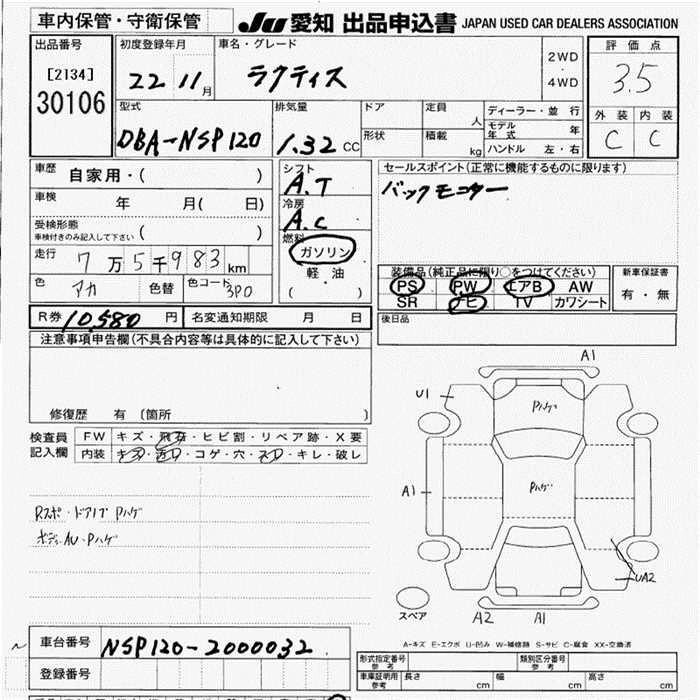 車内保管・守衛保管
JU 愛知 出品申込書 JAPAN USED CAR DEALERS ASSOCIATION
出品番号 初度登録年月 車名・グレード 評価点
[2134] 22 11月 ラクティス 2WD・4WD 3.5
30106
型式 排気量 ドア 定員 人 ディーラー・並行
外装 内装
モデル年式 年
DBA-NSP120 1.32 CC 形状 積載 kg ハンドル 左・右 C C
車歴 自家用・( )
シフト A.T
セールスポイント(正常に機能するものに限ります)
バックモニター
車検 年 月( 日)
冷房 A.C
受検形態
車検付きのみ記入して下さい ( )
燃料 ガソリン
軽油
( )
走行 7万5千983km
色 アカ 色替 色コード 3P0
装備品(純正品に限り○をつけてください) 新車保証書
PS PW エアB AW 有・無
SR ナビ TV カワシート
R券 10,580円 名変通知期限 月 日
後日品
注意事項申告欄(不具合内容等は具体的に記入して下さい)
修復歴 有 (箇所 )
検査員記入欄 FW キズ・飛石・ヒビ割・リペア跡・X要
内装 キズ・コゲ・穴・キレ・破レ
Rスポ・ドアノブ Pハゲ
ボディAU・Pハゲ
A1
U1
Pハゲ
A1
Pハゲ
UA2
スペア
A2 A1
A-キズ E-エクボ U-凹み W-補修跡 S-サビ C-腐食 XX-交換済
車台番号 NSP120-2000032
登録番号
形式指定番号 参考 類別区分番号 参考
車庫証明用 参考 長さ cm 幅 cm 高さ cm